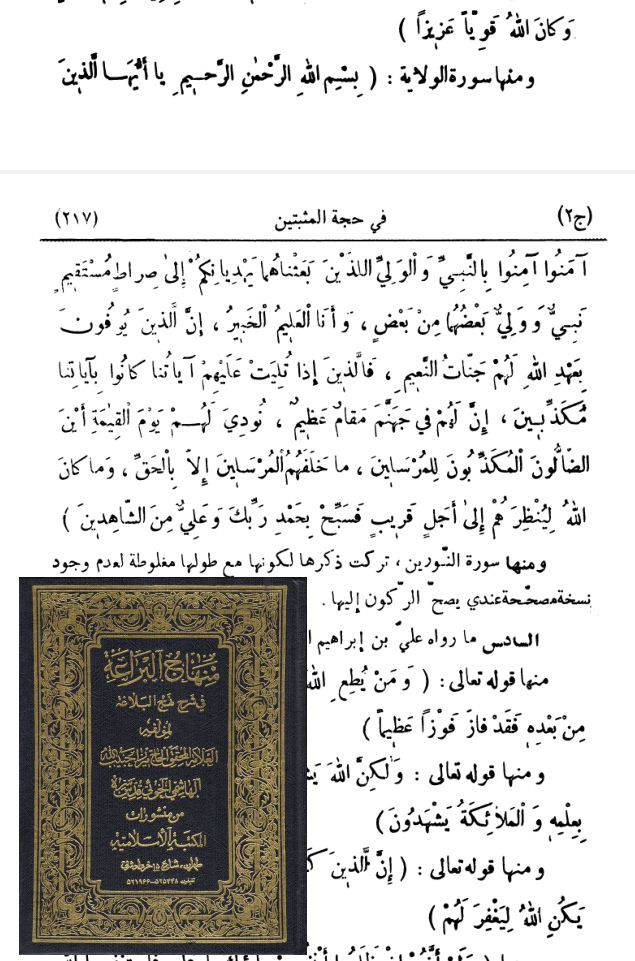 وَكانَ اللهُ قَوِيّاً عَزيزاً )
ومنها سورة الولاية : ( بِسْمِ اللهِ الرَّحْمٰنِ الرَّحيمِ يا أَيُّهَا الَّذينَ
(ج٢) في حجة المثبتين (٢١٧)
آمَنُوا آمِنُوا بِالنَّبِيِّ وَالْوَلِيِّ اللَّذَيْنَ بَعَثْناهُما يَهْدِيانِكُمْ إِلىٰ صِراطٍ مُسْتَقيمٍ
نَبِيٌّ وَوَلِيٌّ بَعْضُهُما مِنْ بَعْضٍ ، وَأَنَا الْعَليمُ الْخَبيرُ ، إِنَّ الَّذينَ يُوفُونَ
بِعَهْدِ اللهِ لَهُمْ جَنّاتُ النَّعيمِ ، فَالَّذينَ إِذا تُلِيَتْ عَلَيْهِمْ آياتُنا كانُوا بِآياتِنا
مُكَذِّبينَ ، إِنَّ لَهُمْ في جَهَنَّمَ مَقامٌ عَظيمٌ ، نُودِيَ لَهُمْ يَوْمَ الْقِيٰمَةِ أَيْنَ
الضّالُّونَ الْمُكَذِّبُونَ لِلْمُرْسَلينَ ، ما خَلَفَهُمُ الْمُرْسَلينَ إِلاّ بِالْحَقِّ ، وَما كانَ
اللهُ لِيُنْظِرَهُمْ إِلىٰ أَجَلٍ قَريبٍ فَسَبِّحْ بِحَمْدِ رَبِّكَ وَعَلِيٌّ مِنَ الشّاهِدينَ )
ومنها سورة النّورين ، تركت ذكرها لكونها مع طولها مغلوطة لعدم وجود
نسخة مصحّحة عندي يصحّ الرّكون إليها .
السادس ما رواه عليّ بن إبراهيم
منها قوله تعالى : ( وَمَنْ يُطِعِ اللهَ
مِنْ بَعْدِهِ فَقَدْ فازَ فَوْزاً عَظيماً )
ومنها قوله تعالى : وَلٰكِنَّ اللهَ
بِعِلْمِهِ وَالْمَلائِكَةُ يَشْهَدُونَ )
ومنها قوله تعالى : ( إِنَّ الَّذينَ
يَكُنِ اللهُ لِيَغْفِرَ لَهُمْ )
منهاج البراعة
في شرح نهج البلاغة
لمؤلفه
العلامة المحقق الحاج ميرزا حبيب الله
الهاشمي الخوئي قدس سره
من منشورات
المكتبة الإسلامية